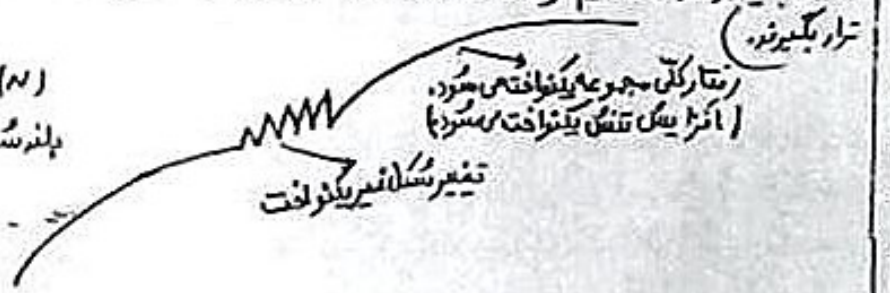 قرار بگیرند.
رفتار کلّی مجموعه یکنواخت می‌شود.
(افزایش تنش یکنواخت می‌شود)
(N)
تغییر شکل غیر یکنواخت